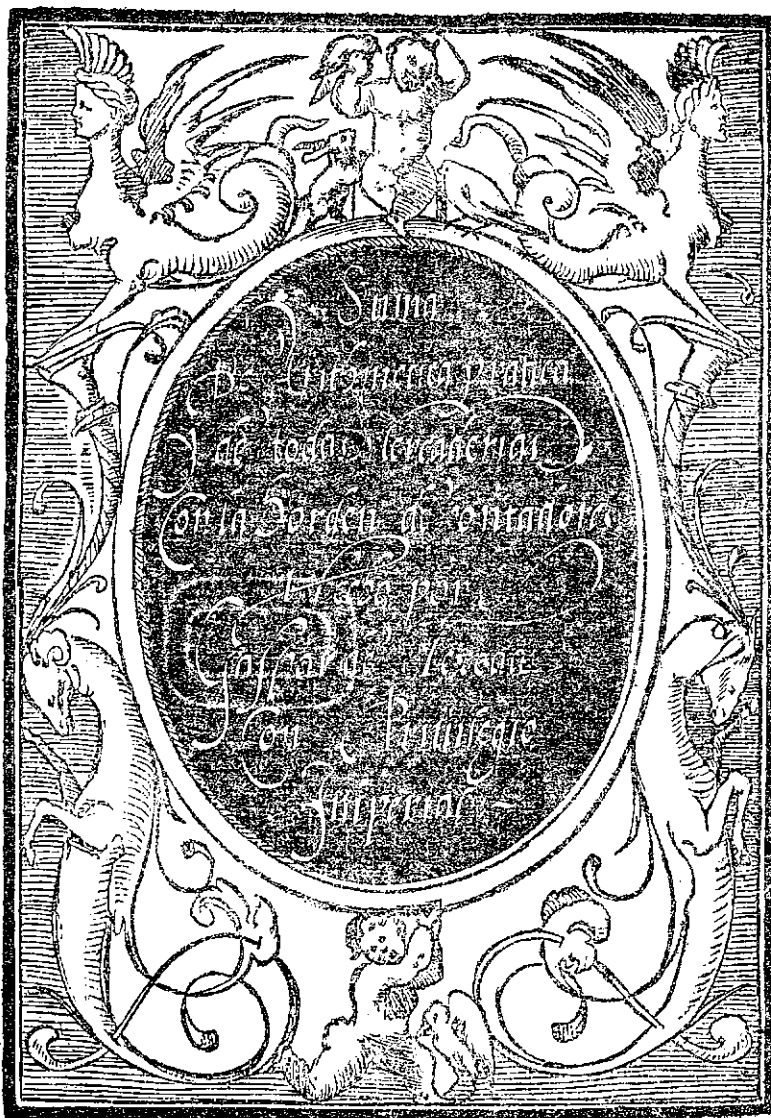 Suma
De Arithmetica pratica
Y de todas Mercaderias
Con la horden de Contadores
Hecho por
Gaspar de Texeda
Con Priuilegio
Imperial